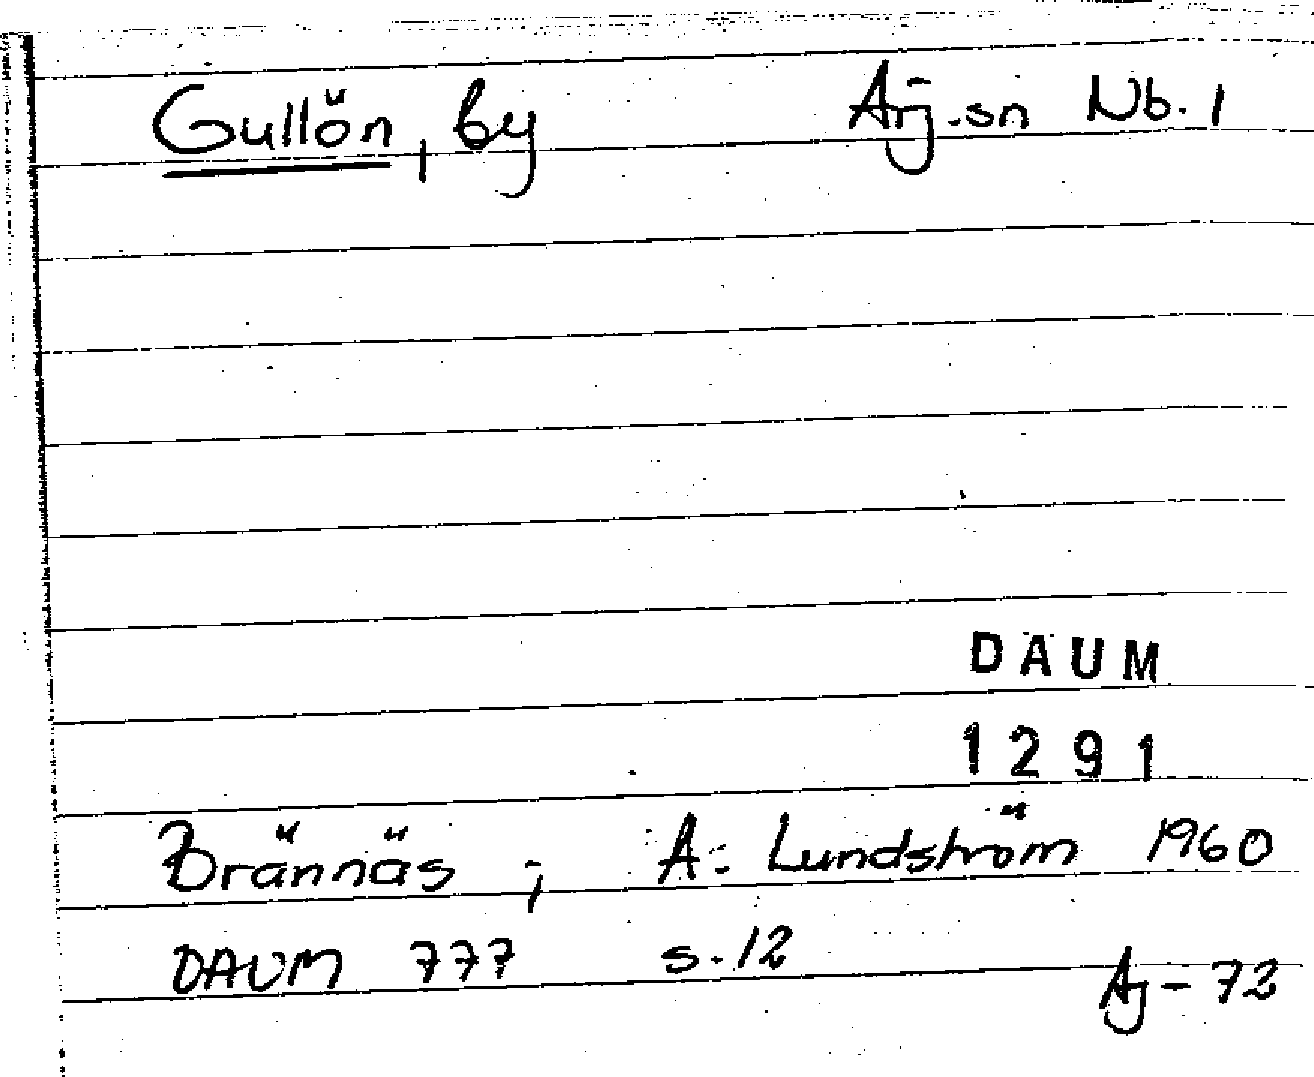 Gullön, by Arj.sn Nb. 1
DAUM
1291
Brännäs ; A. Lundström 1960
DAUM 777 s.12
Aj-72